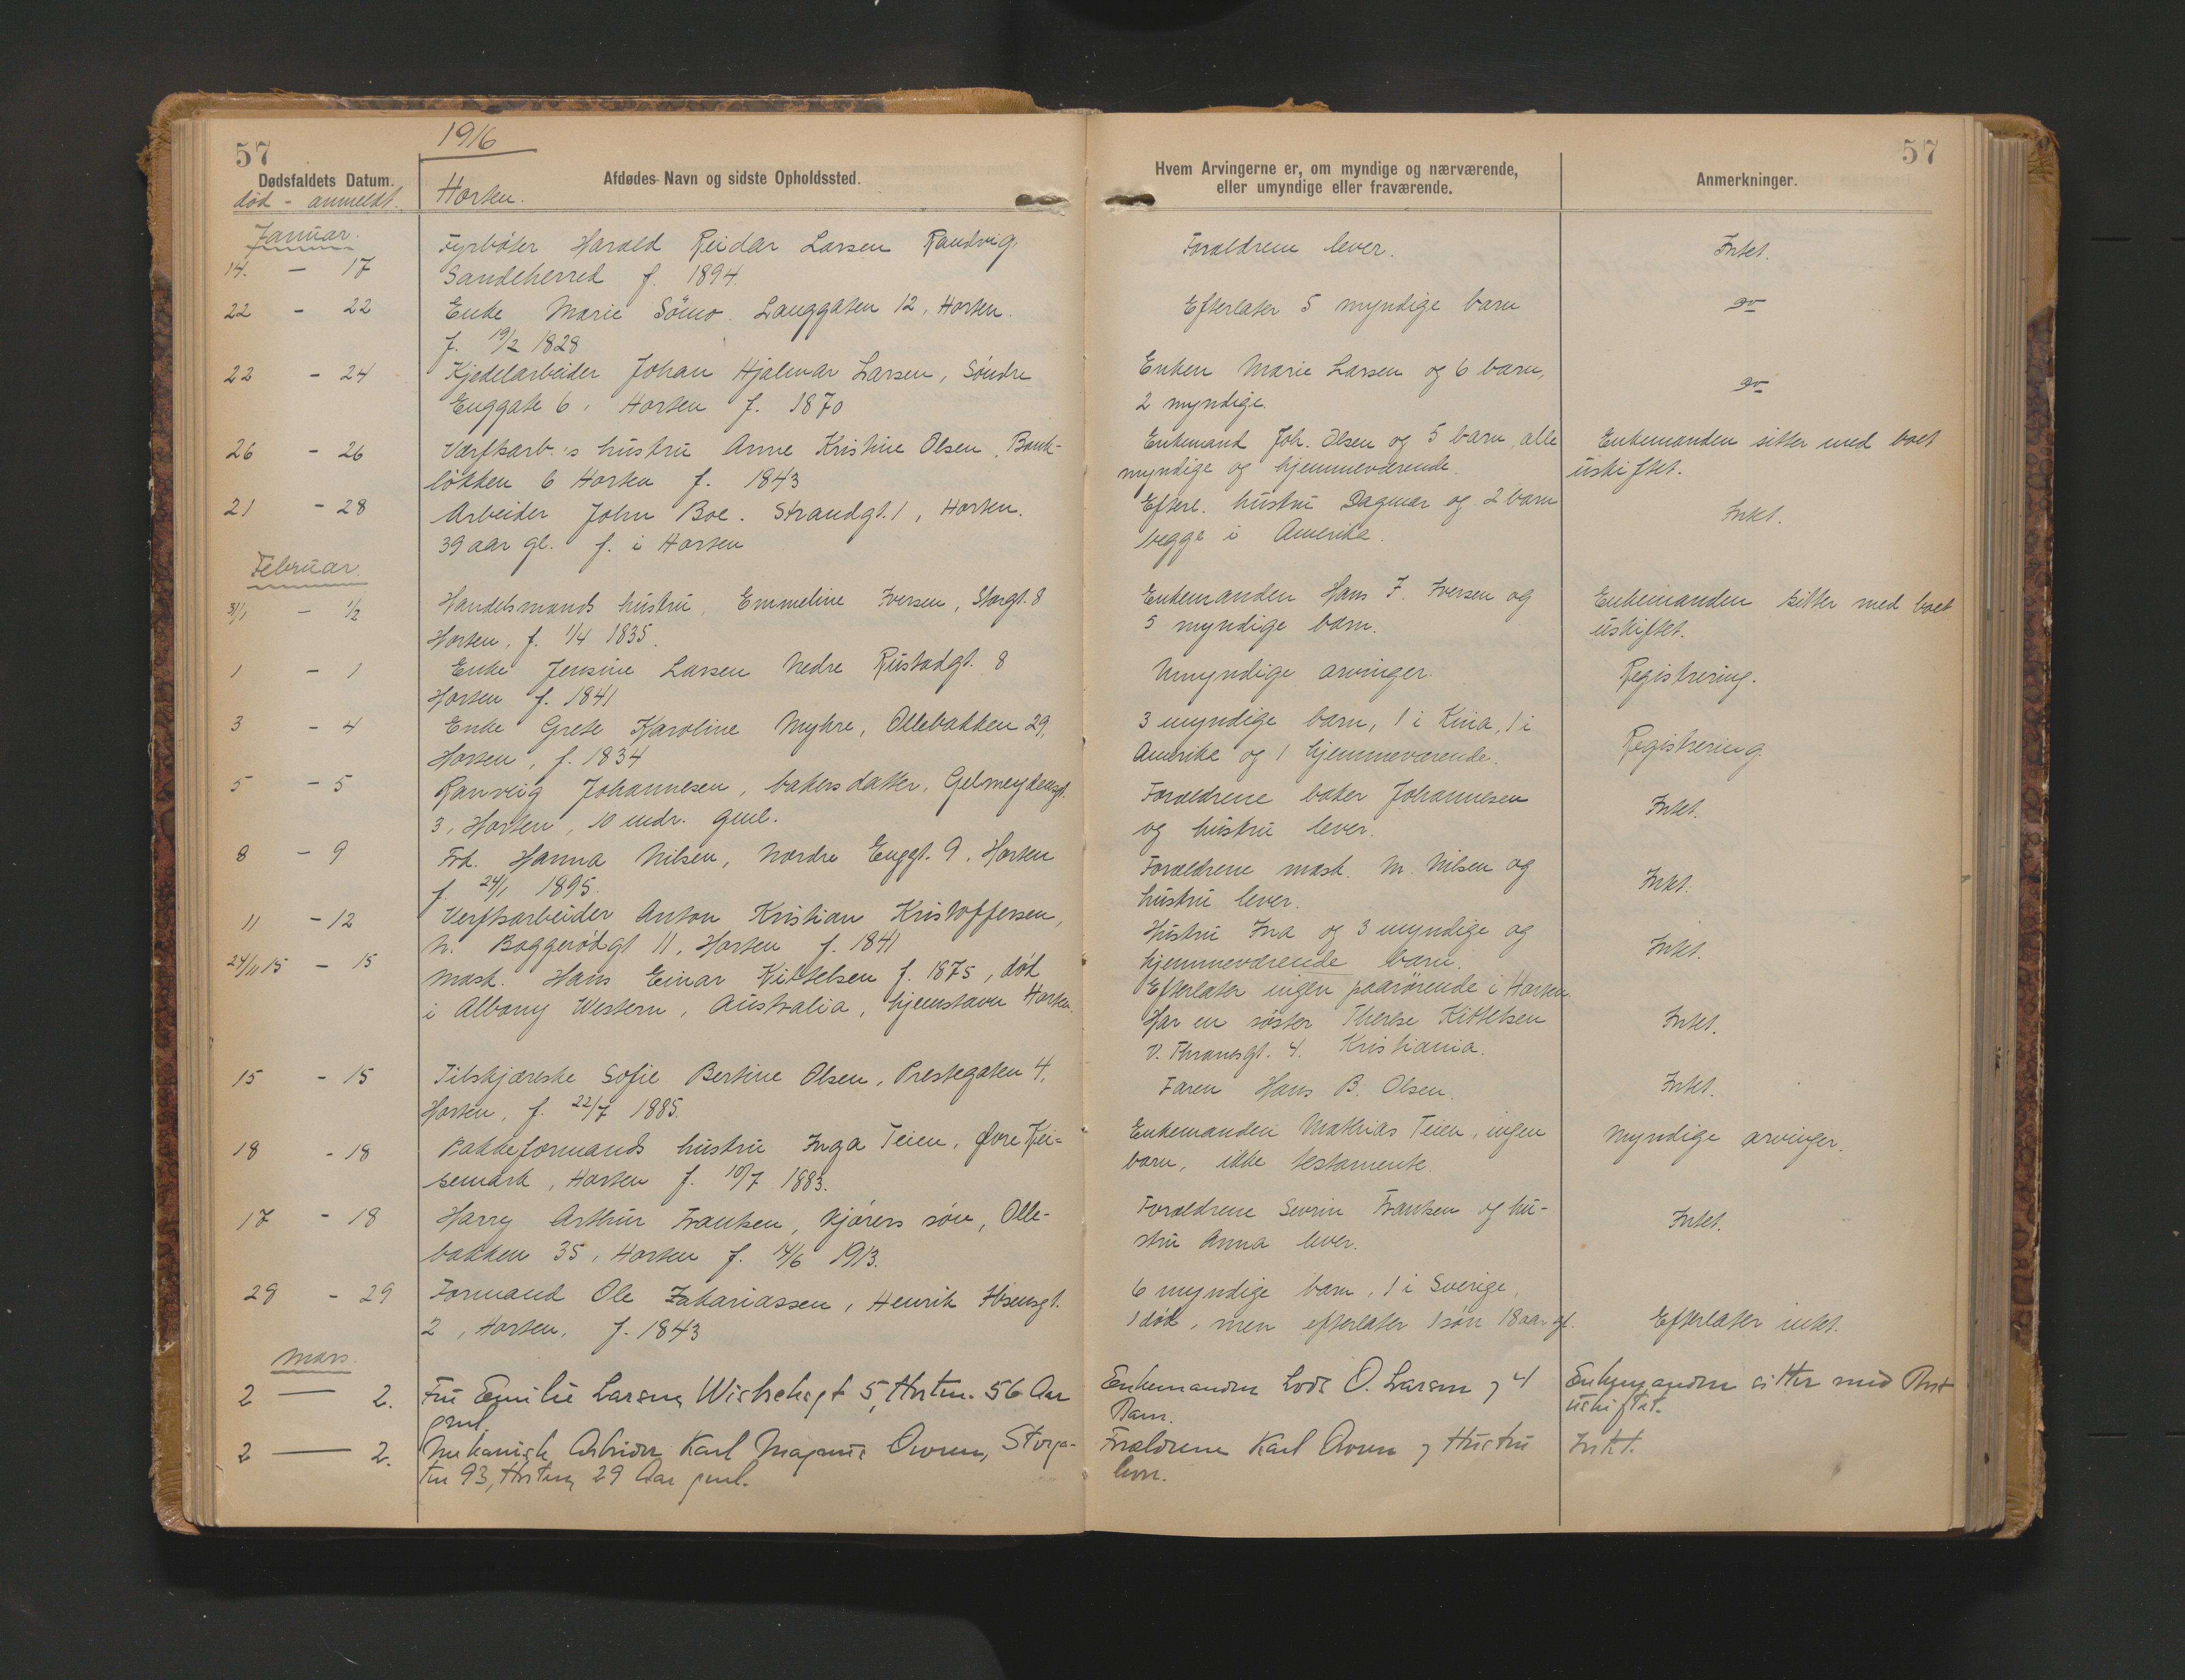 57
1916
Dødsfaldets Datum.
død - anmeldt.
Horten.
Afdødes Navn og sidste Opholdssted.
Hvem Arvingerne er, om myndige og nærværende,
eller umyndige eller fraværende.
Anmerkninger.
57
Januar.
14. - 17
Fyrbøter Harald Reidar Larsen Ranvig
Sandeherred f. 1894.
Forældrene lever.
Intet.
22 - 22
Enke Marie Sömo. Langgaten 12, Horten.
f. 19/2 1828
Efterlater 5 myndige barn
do
22 - 24
Kjedelarbeider Johan Hjalmar Larsen, Söndre
Enggate 6, Horten f. 1870
Enken Marie Larsen og 6 barn,
2 myndige.
do
26 - 26
Værftsarb.'s hustru Anne Kristine Olsen, Bank-
løkken 6 Horten f. 1843
Enkemand Joh. Olsen og 5 barn, alle
myndige og hjemmeværende.
Enkemanden sitter med boet
uskiftet.
21 - 28
Arbeider John Boe. Strandgt. 1, Horten.
39 aar gl. f. i Horten
Efterl. hustru Dagmar og 2 barn
begge i Amerika.
Intet.
Februar.
31/1 - 1/2
Handelsmands hustru, Emmeline Iversen, Storgt. 8
Horten, f. 1/4 1835.
Enkemanden Hans F. Iversen og
5 myndige barn.
Enkemanden sitter med boet
uskiftet.
1 - 1
Enke Jensine Larsen Nedre Rustadgt. 8
Horten f. 1841
Umyndige arvinger.
Registrering.
3 - 4
Enke Grete Karoline Myhre, Ollebakken 29,
Horten, f. 1834
3 myndige barn, 1 i Kina, 1 i
Amerika og 1 hjemmeværende.
Registrering.
5 - 5
Ranveig Johannesen, bakers datter, Gelmeydensgt.
3, Horten, 10 mdr. gml.
Forældrene baker Johannesen
og hustru lever.
Intet.
8 - 9
Frk. Hanna Nilsen, Nordre Enggt. 9, Horten
f. 24/1 1895.
Forældrene mask. M. Nilsen og
hustru lever.
Intet.
11 - 12
Verftsarbeider Anton Kristian Kristoffersen,
N. Baggerødgt 11, Horten f. 1841
Hustru Ina og 3 myndige og
hjemmeværende barn.
Intet.
24/11 15 - 15
Mask. Hans Einar Kittelsen f. 1875, død
i Albany Western, Australia, hjemstavn Horten.
Efterlater ingen paarørende i Horten.
Har en søster Therese Kittelsen
V. Thranesgt. 4. Kristiania.
Intet.
15 - 15
Tilskjærerske Sofie Bertine Olsen, Prestegaten 4,
Horten, f. 22/7 1885.
Faren Hans B. Olsen.
Intet.
18 - 18
Bakkeformands hustru Inga Teien, Øvre Kei-
semark, Horten f. 10/7 1883.
Enkemanden Mathias Teien, ingen
barn, ikke testamente.
Myndige arvinger.
17 - 18
Harry Arthur Frantzen, kjørers søn, Olle-
bakken 35, Horten f. 14/6 1913.
Forældrene Sevrin Frantzen og hu-
stru Anna lever.
Intet.
29 - 29
Formand Ole Zakariassen, Henrik Ibsensgt.
2, Horten, f. 1843
6 myndige barn, 1 i Sverige,
1 død, men efterlater 1 søn 18 aar gl.
Efterlater intet.
Mars.
2 — 2.
Fru Emilie Larsen, 5, Horten. 56 Aar
gml.
Enkemanden Lods O. Larsen og 4
Barn.
Enkemanden sitter med Boet
uskiftet.
2 — 2.
Mekanisk Arbeider Karl Magnus Ovren, Storga-
ten 93, Horten, 29 Aar gml.
Forældrene Karl Ovren og Hustru
lever.
Intet.